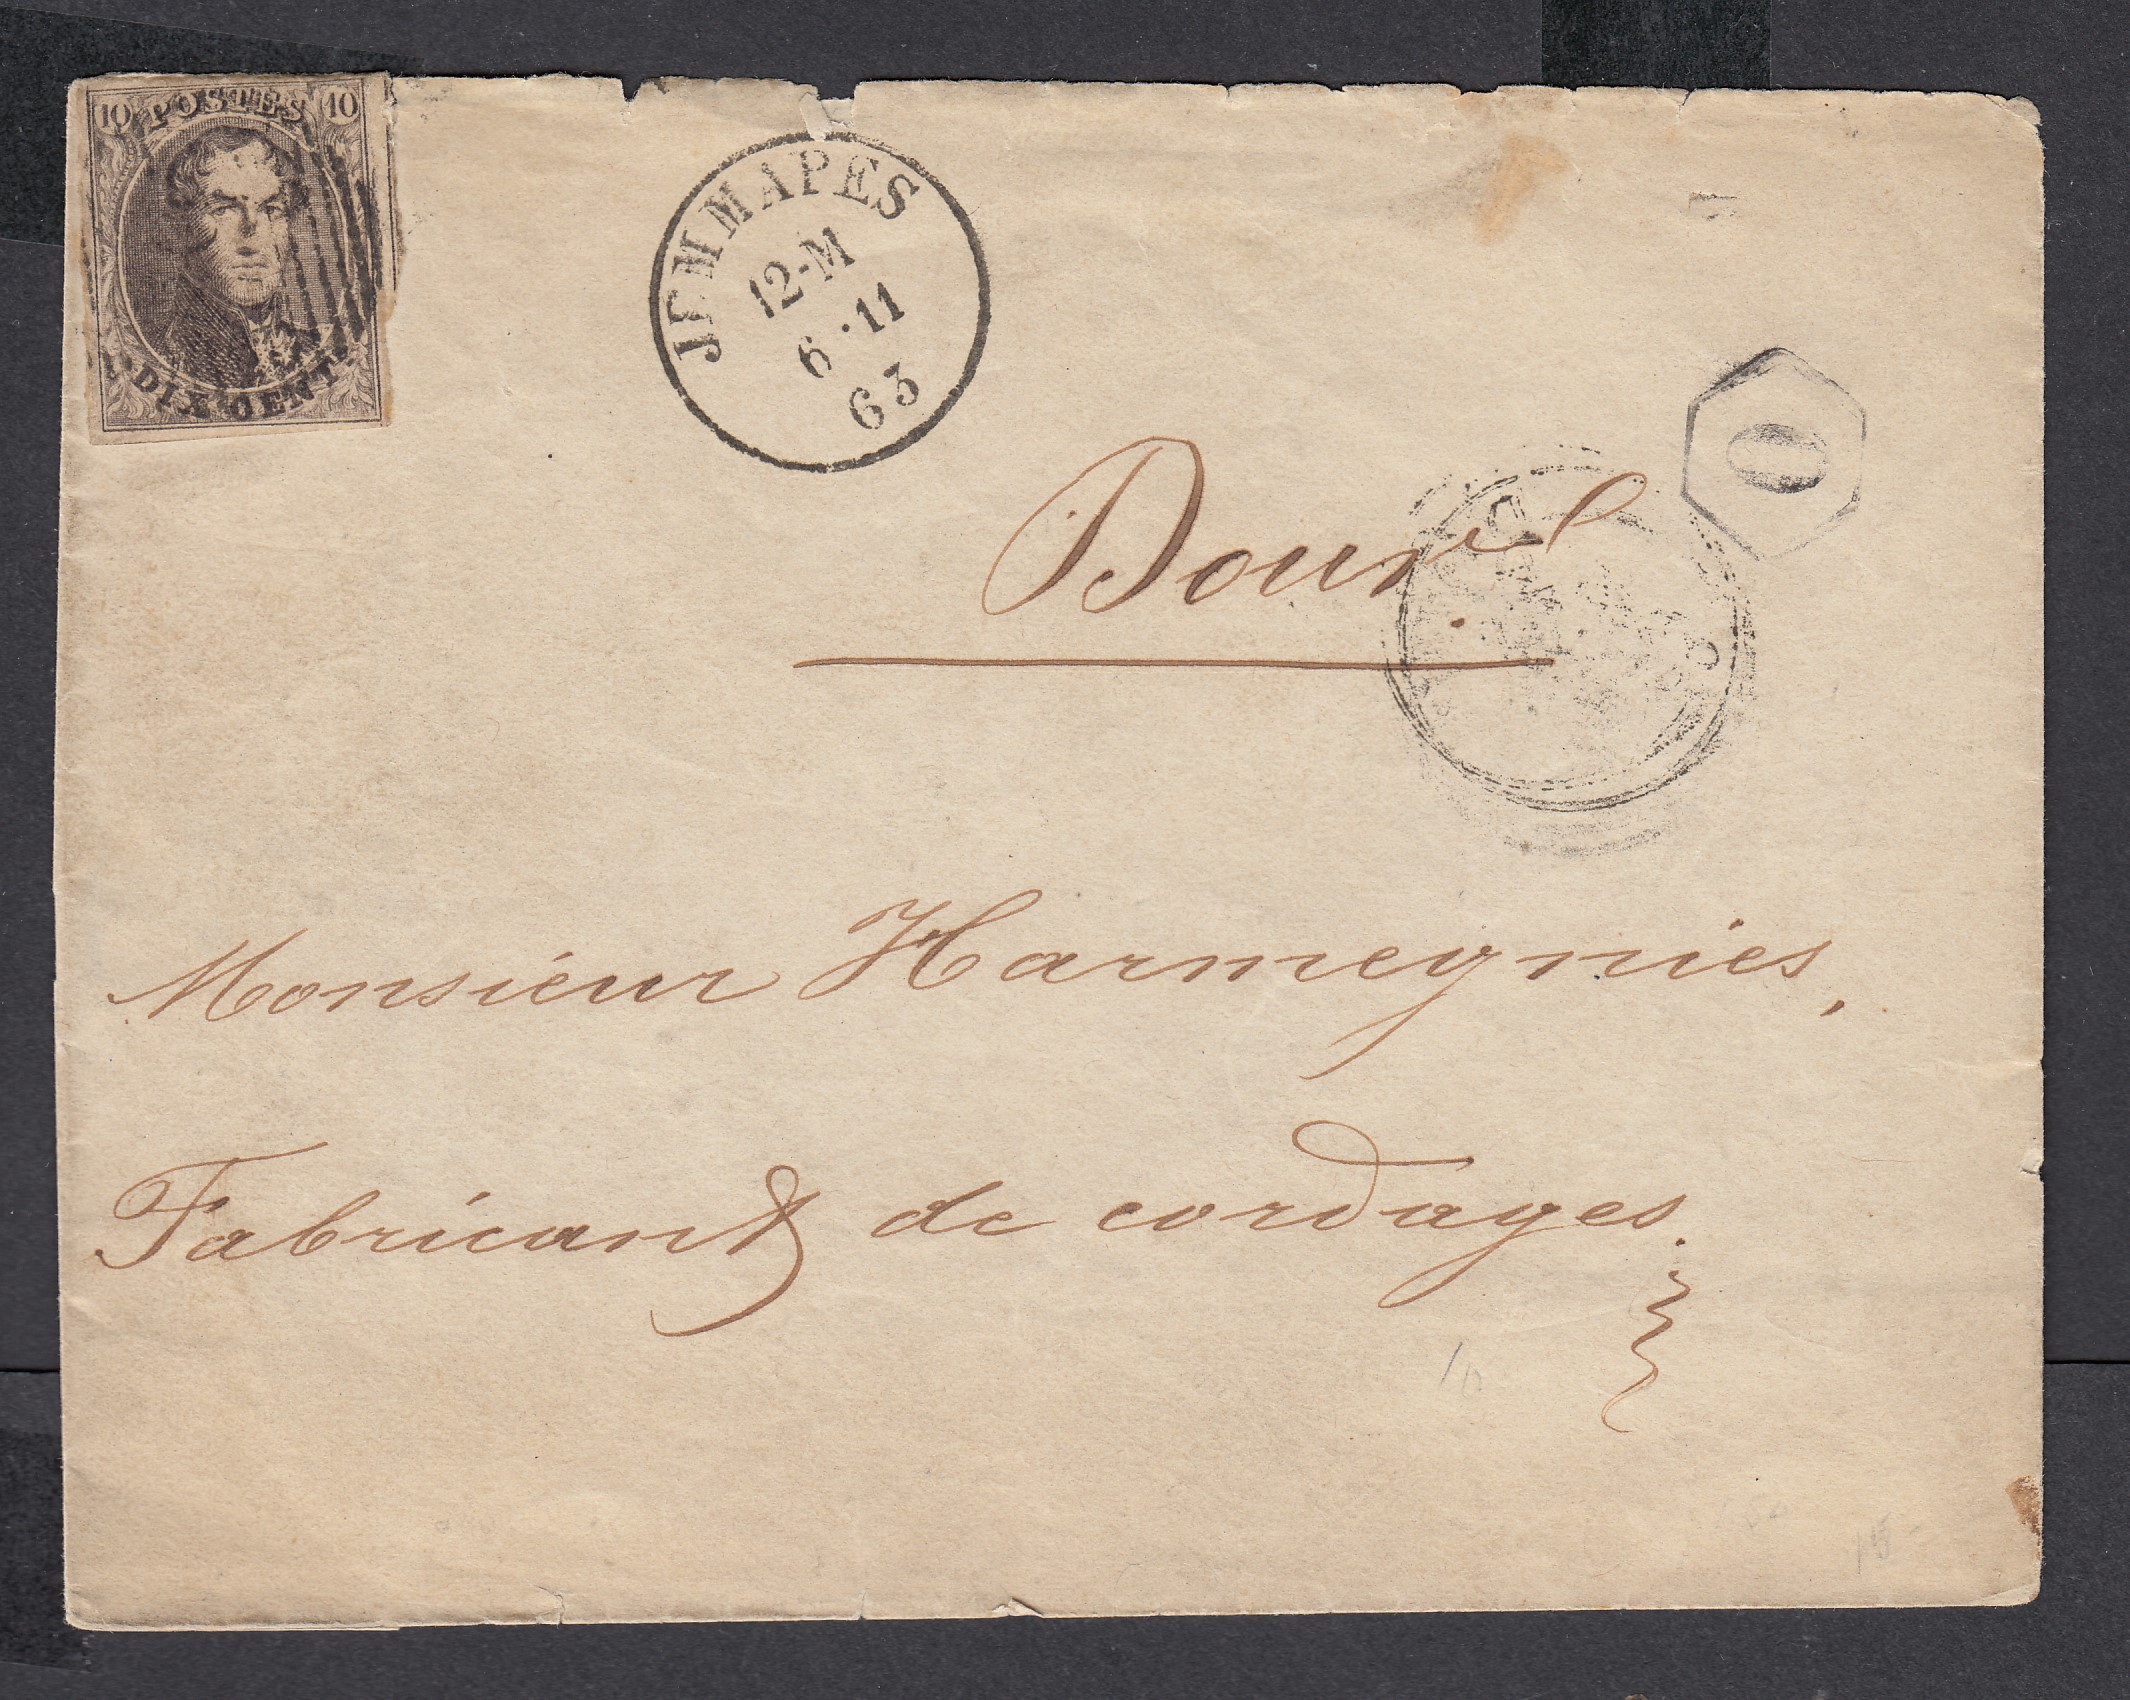 10 POSTES 10
DIX CENT.
JEMMAPES
12-M
6 · 11
63
O
Dour.
Monsieur Harmegnies,
Fabricant de cordages.